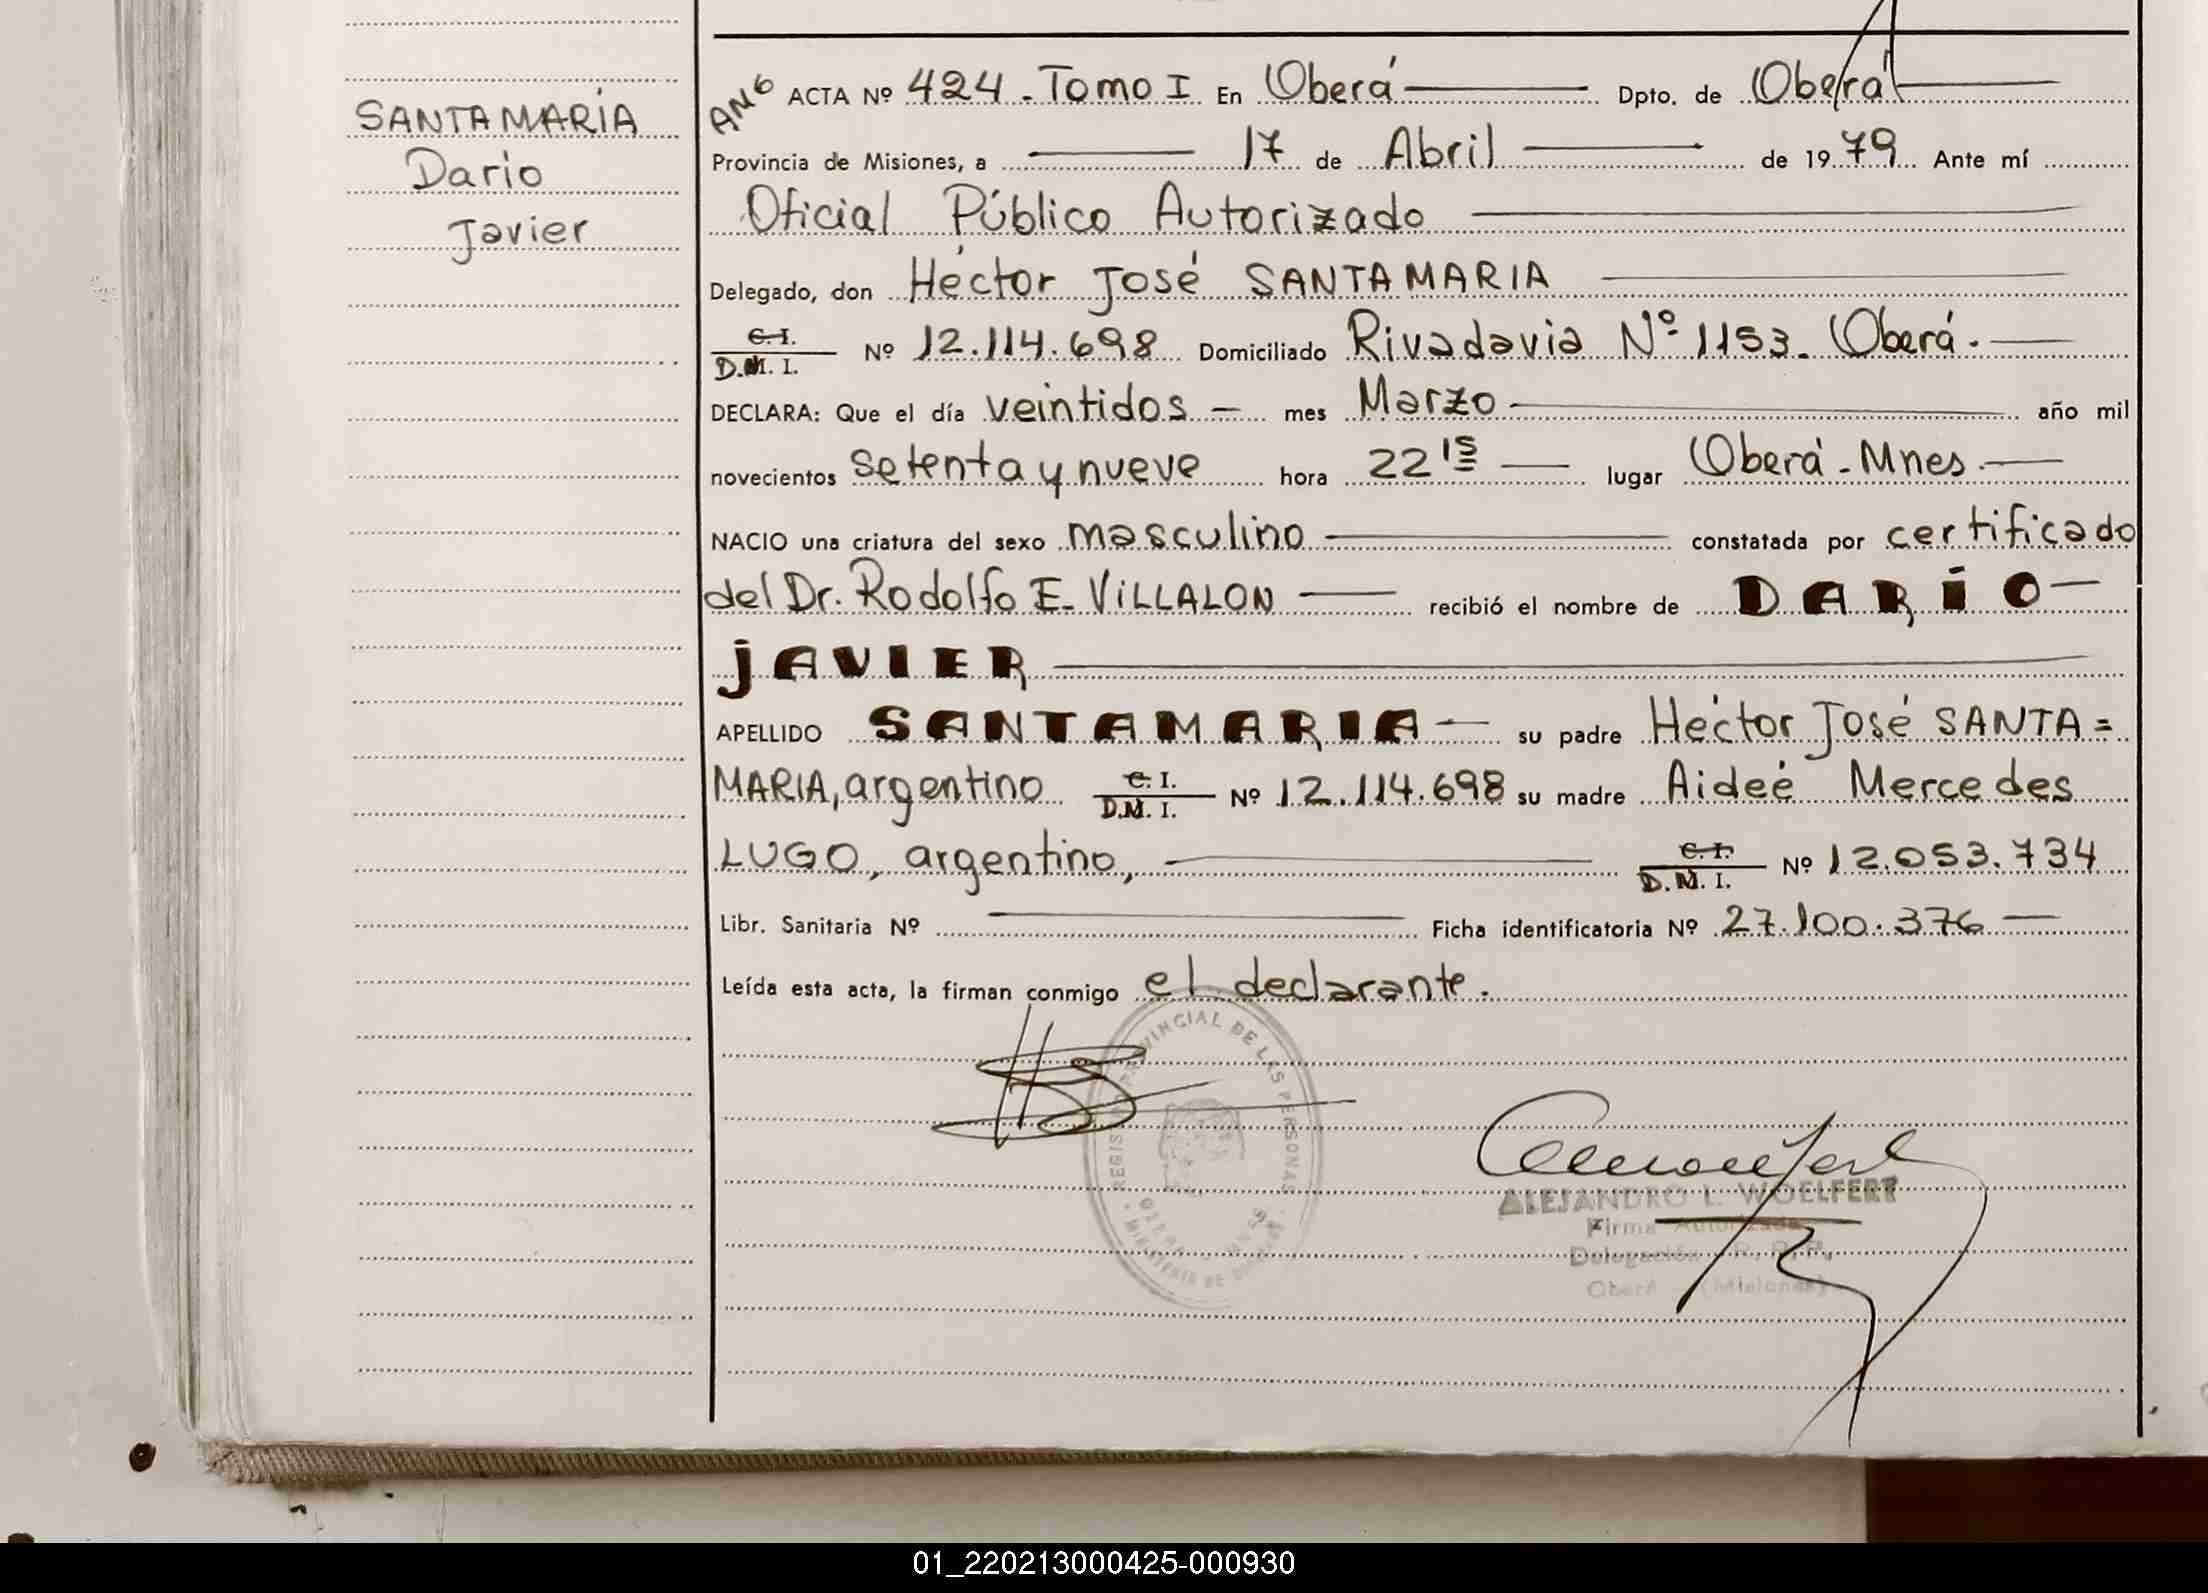 SANTAMARIA
Dario
Javier
ANº ACTA Nº 424 - Tomo I En Oberá Dpto. de Oberá
Provincia de Misiones, a 17 de Abril de 1979 Ante mí
Oficial Público Autorizado
Delegado, don Héctor José SANTAMARIA
C.I.
D.M.I. Nº 12.114.698 Domiciliado Rivadavia Nº 1153. Oberá.
DECLARA: Que el día veintidos - mes Marzo año mil
novecientos setenta y nueve hora 22 15 lugar Oberá - Mnes.
NACIO una criatura del sexo masculino constatada por certificado
del Dr. Rodolfo E. VILLALON recibió el nombre de DARÍO
JAVIER
APELLIDO SANTAMARIA su padre Héctor José SANTA=
MARIA, argentino C.I.
D.M.I. Nº 12.114.698 su madre Aideé Mercedes
LUGO, argentino, C.I.
D.M.I. Nº 12.053.734
Libr. Sanitaria Nº Ficha identificatoria Nº 27.100.376
Leída esta acta, la firman conmigo el declarante.
REGISTRO PROVINCIAL DE LAS PERSONAS
ALEJANDRO L. WOELFERT
Firma Autorizada
Delegación R. P. P.
Oberá - (Misiones)
01_220213000425-000930